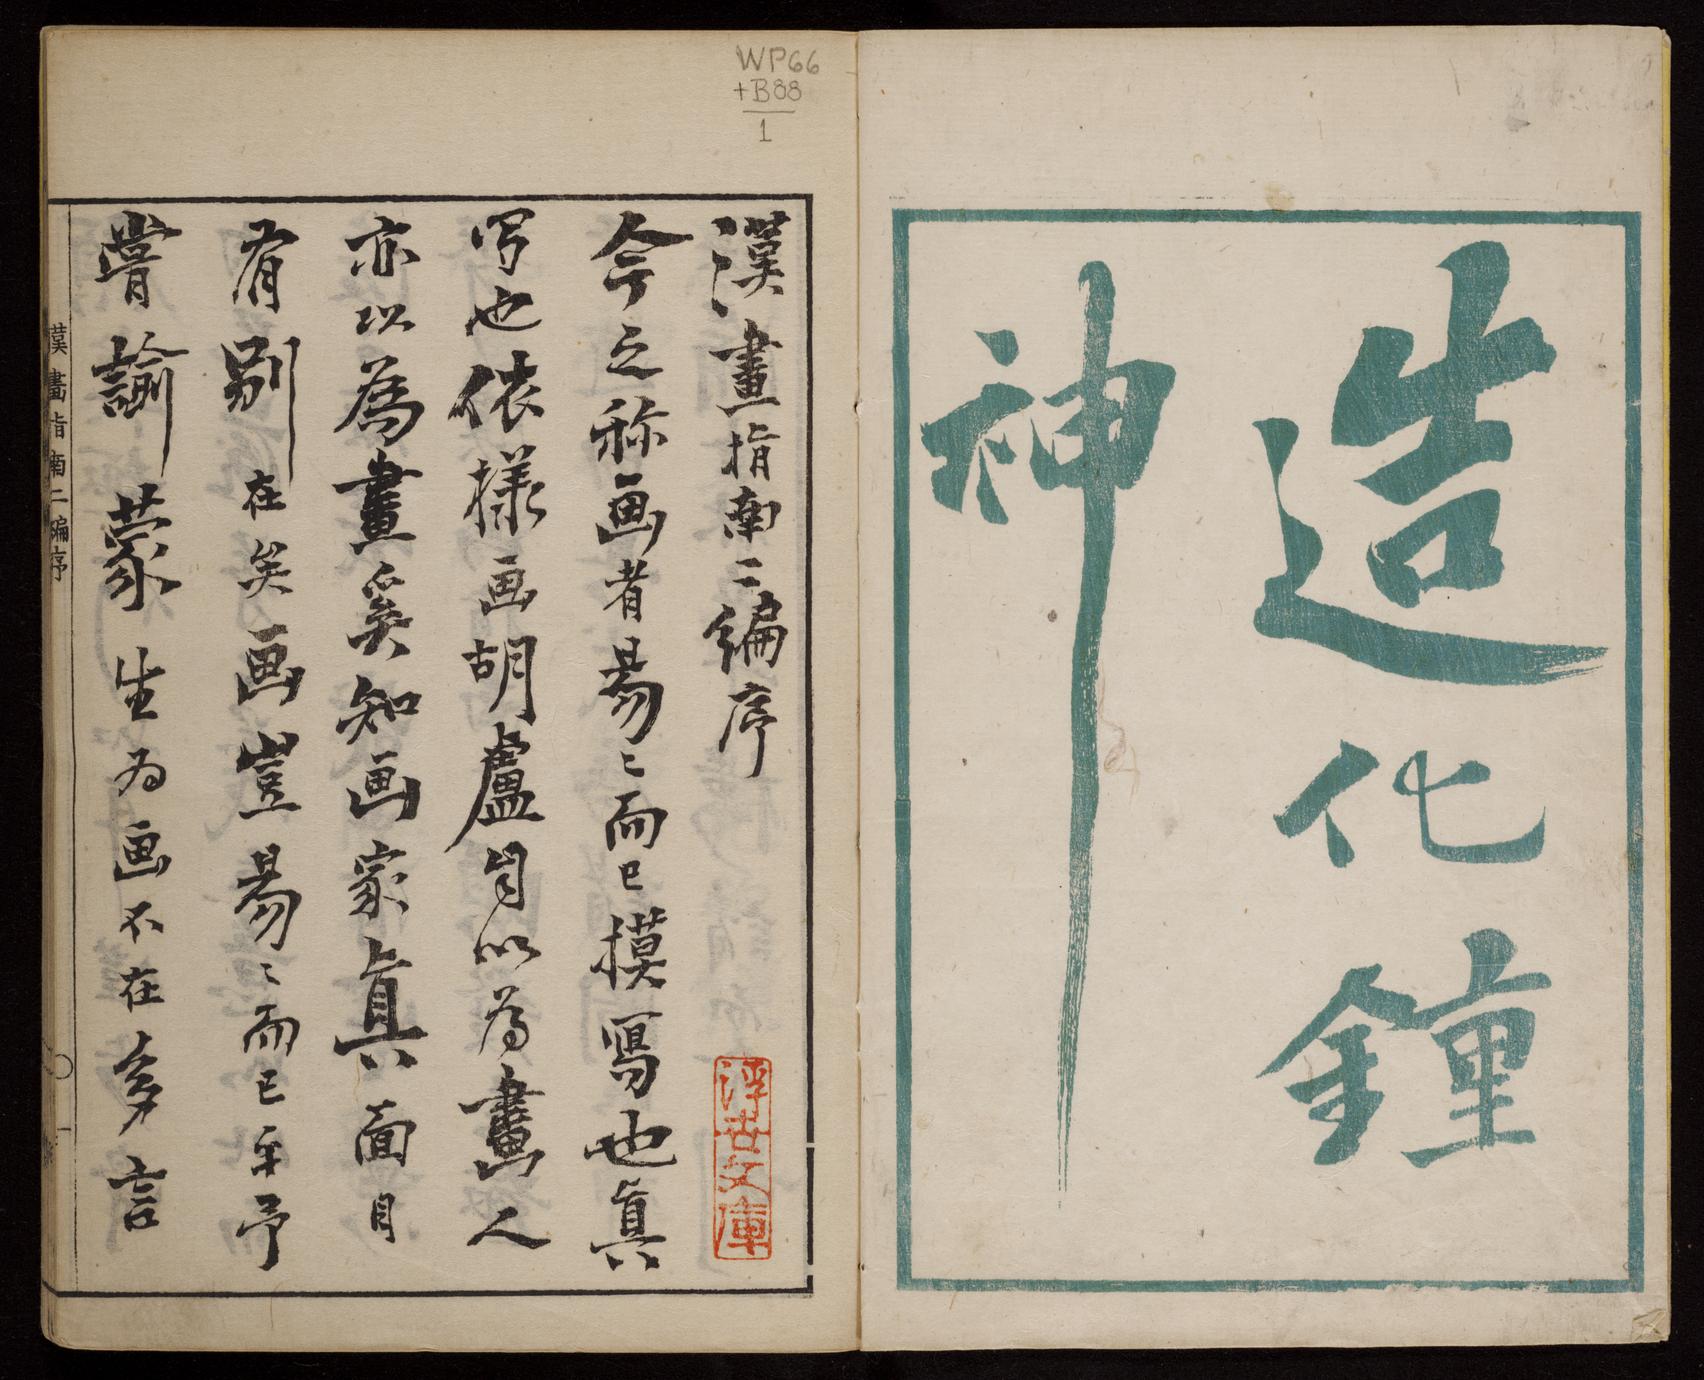 造化鐘
神
WP66
+B88
1
漢畫指南二編序
今之称画者昜〻而已摸寫也眞
写也依様画胡盧自以為畫人
亦以為畫奚知画家眞面目
有別在矣画豈昜〻而已乎予
嘗諭蒙生為画不在多言
浮古文庫
漢畫指南二編序
一